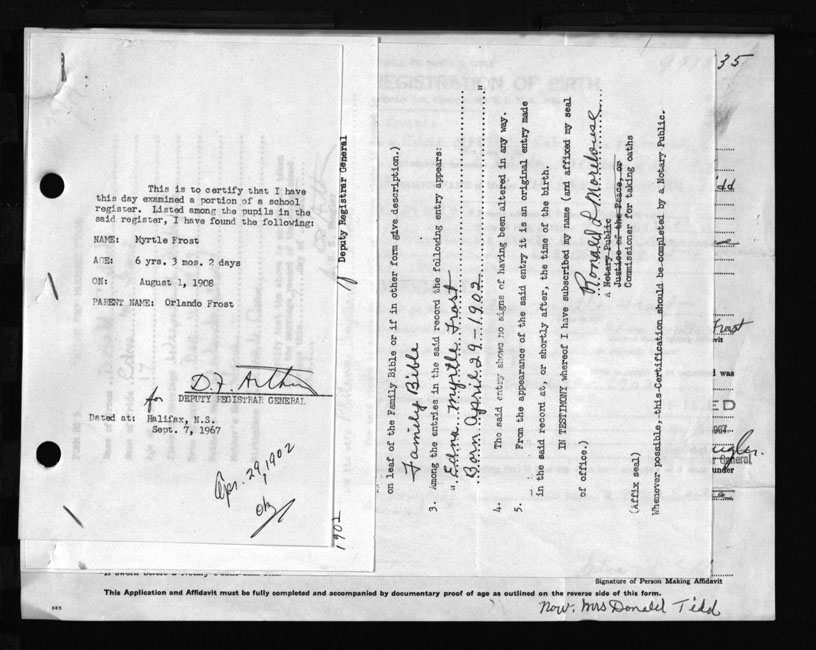 This is to certify that I have
this day examined a portion of a school
register. Listed among the pupils in the
said register, I have found the following:
NAME: Myrtle Frost
AGE: 6 yrs. 3 mos. 2 days
ON: August 1, 1908
PARENT NAME: Orlando Frost
D.F. Arthur
for DEPUTY REGISTRAR GENERAL
Dated at: Halifax, N.S.
Sept. 7, 1967
Apr. 29, 1902
ok
Deputy Registrar General
1902
on leaf of the Family Bible or if in other form give description.)
Family Bible
3. Among the entries in the said record the following entry appears:
"Edna Myrtle Frost
Born April 29 - 1902"
4. The said entry shows no signs of having been altered in any way.
5. From the appearance of the said entry it is an original entry made
in the said record at, or shortly after, the time of the birth.
IN TESTIMONY whereof I have subscribed my name (and affixed my seal
of office.)
Ronald L Morehouse
A Notary Public
Justice of the Peace, or
Commissioner for taking oaths
(Affix seal)
Whenever possible, this Certification should be completed by a Notary Public.
REGISTRATION OF BIRTH
35
Frost
was
General
under
Signature of Person Making Affidavit
This Application and Affidavit must be fully completed and accompanied by documentary proof of age as outlined on the reverse side of this form.
Now. Mrs Donald Tidd